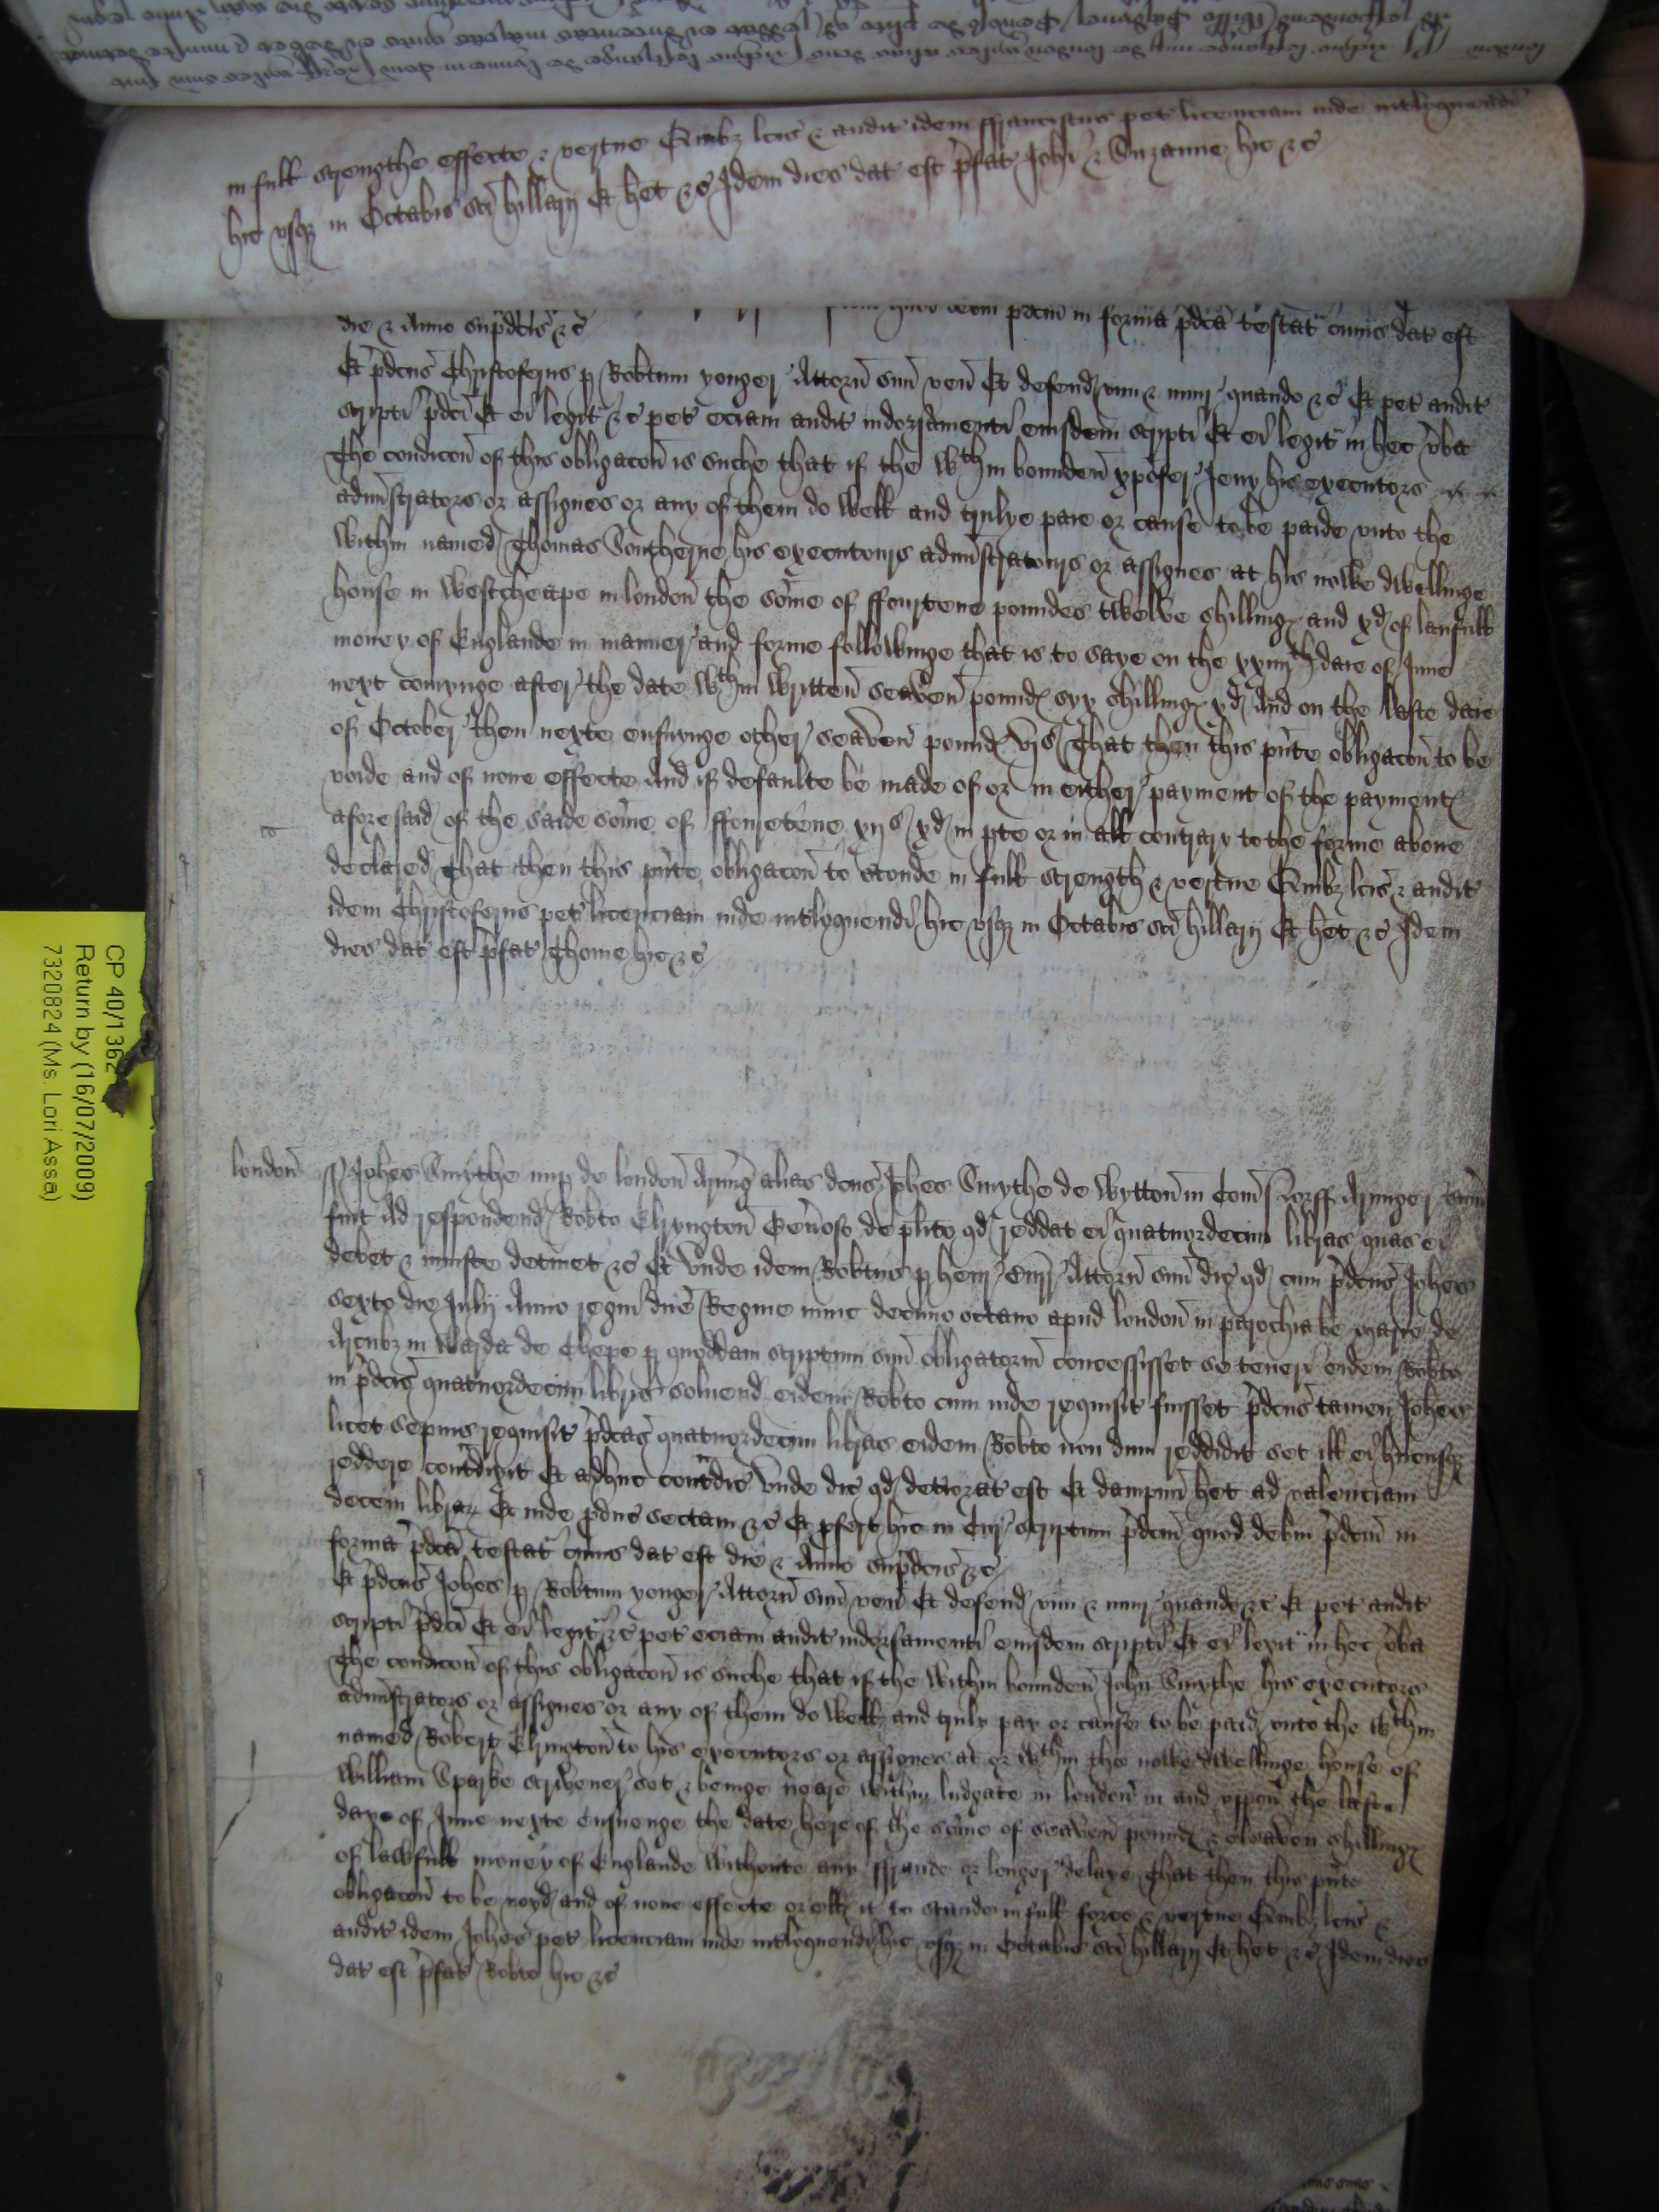 in full strengthe effecte & vertue Quibz lcis & audit idem ffranciscus pet licenciam inde intloquendi
hic usqz in Octabis sci hillarij Et het &c Idem dies dat est pfat Johi & Suzanne hic &c
pdcm in forma pdca testat cuius dat est
die & Anno supdcis &c
Et pdcus Christoferus p Robtum yonger Attorn suu ven Et defend vim & iniur quando &c Et pet audit
scripti pdci Et ei legit &c pet eciam audit indorsamenti eiusdem scripti Et ei legit in hec vba
The condicon of this obligacon is suche that if the wthin bounden xpofer Jeny his executors
admistrators or assignes or any of them do well and trulye paie or cause to be paide unto the
within named Thomas Sontherne his executours admistratours or assignes at his nowe dwellinge
house in Westcheape in london the some of ffourtene poundes twelve shilling and xd of laufull
money of Englande in manner and forme followinge that is to saye on the xxiiijth daie of June
next comynge after the date wthin written seaven pound syx shilling xd And on the laste daie
of October then nexte ensuynge other seaven pound vjs That then this pnte obligacon to be
voide and of none effecte And if defaulte be made of or in either payment of the payment
aforesaid of the saide some of ffourtene xijs xd in pte or in all contrary to the forme above
declared That then this pnte obligacon to stonde in full strength & vertue Quibz lcis & audit
idem Christoferus pet licenciam inde intloquendi hic usqz in Octabis sci hillarij Et het &c Idem
dies dat est pfat Thome hic &c
london ss Johes Smythe nup de london Armig alias dcus Johes Smythe de Wytton in Com Norff Armiger
fuit Ad respondend Robto Elryngton Genoso de plito qd reddat ei quatuordecim libras quas ei
debet & iniuste detinet &c Et Unde idem Robtus p henr Attorn suu dic qd cum pdcus Johes
sexto die Julij Anno regni dne Regine nunc decimo octavo apud london in parochia be marie de
Arcubz in Warda de Chepe p quoddam scriptum suu obligatoriu concessisset se teneri eidem Robto
in pdcis quatuordecim libris solvend eidem Robto cum inde requisit fuisset pdcus tamen Johes
licet sepius requisit pdcas quatuordecim libras eidem Robto non dum reddidit set ill ei hucusqz
reddere contdixit Et adhuc contdic Unde dic qd deteriorat est Et dampnu het ad valenciam
decem librar Et inde pduc sectam &c Et pfert hic in Cur scriptum pdcm quod debm pdcm in
forma pdca testat cuius dat est die & Anno supdcis &c
Et pdcus Johes p Robtum yonger Attorn suu ven Et defend vim & iniur quando &c Et pet audit
scripti pdci Et ei legit &c pet eciam audit indorsamenti eiusdem scripti Et ei legit in hec vba
The condicon of this obligacon is suche that if the within bounden John Smythe his executors
admistrators or assignes or any of them do well and truly pay or cause to be paid unto the wthin
named Robert Elrington to his executors or assignes at or wthin the nowe dwellinge house of
William Sparke scrivener set & beinge neare within ludgate in london in and uppon the laste
daye of June nexte ensuenge the date hereof the some of seaven pound & eleaven shilling
of lawfull money of Englande withoute any ffraude or longer delaye That then this pnte
obligacon to be voyd and of none effecte or ells it to stande in full force & vertue Quibz lcis &
audit idem Johes pet licenciam inde intloquendi hic usqz in Octabis sci hillarij Et het &c Idem dies
dat est pfat Robto hic &c
CP 40/1362
Return by (16/07/2009)
7320824 (Ms. Lori Assa)